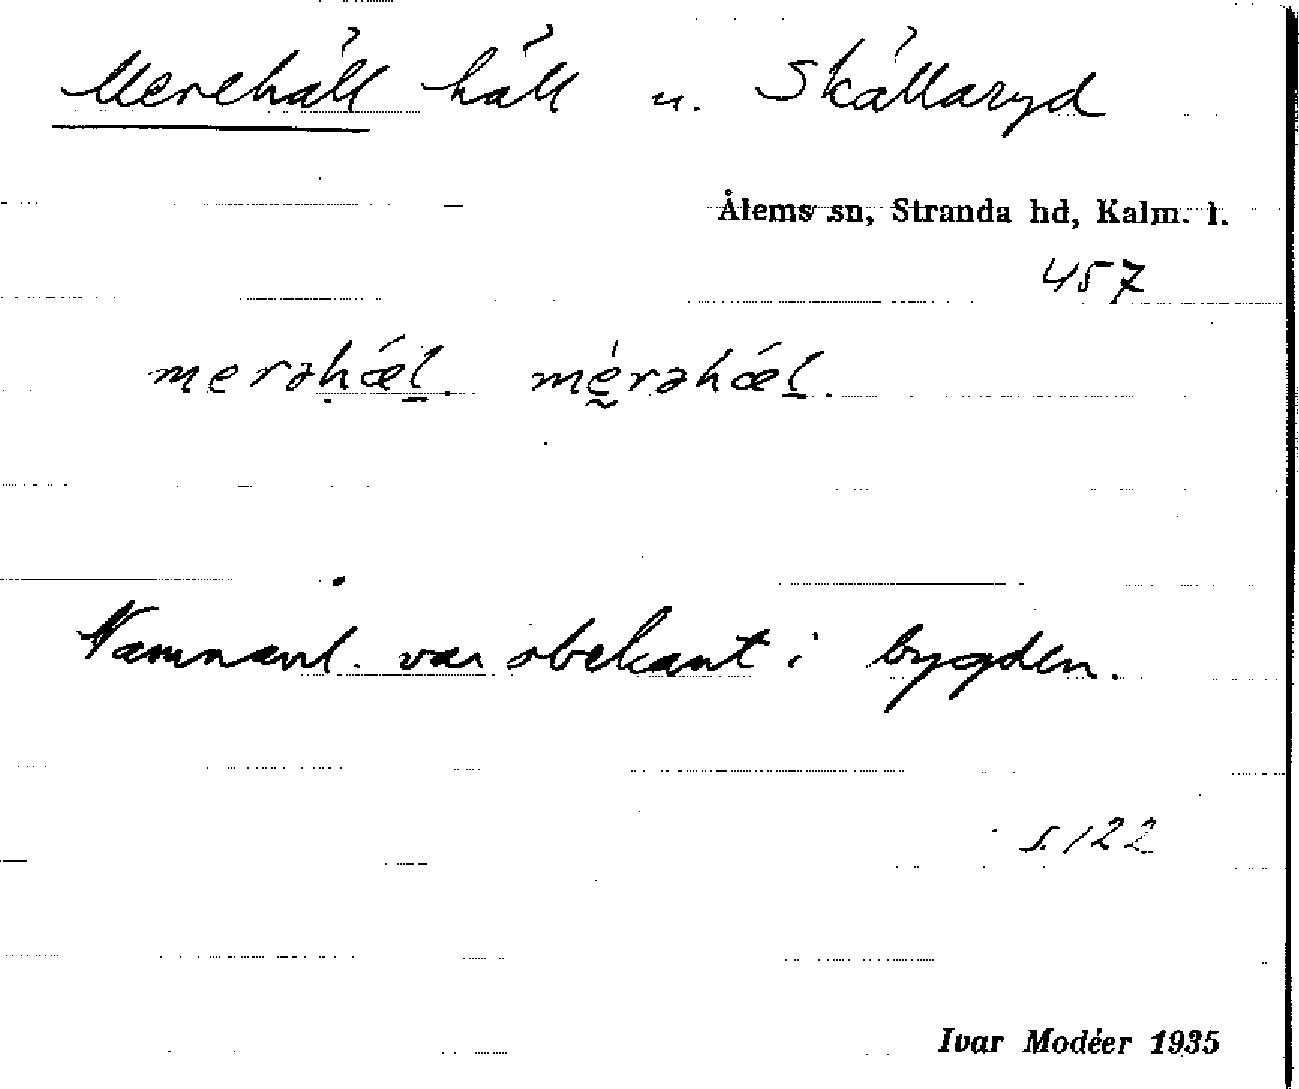 Merehäll häll u. Skällaryd
Ålems sn, Stranda hd, Kalm. l.
457
merəhǽl. mérəhǽl.
Namnavl. var obekant i bygden.
s. 122
Ivar Modéer 1935